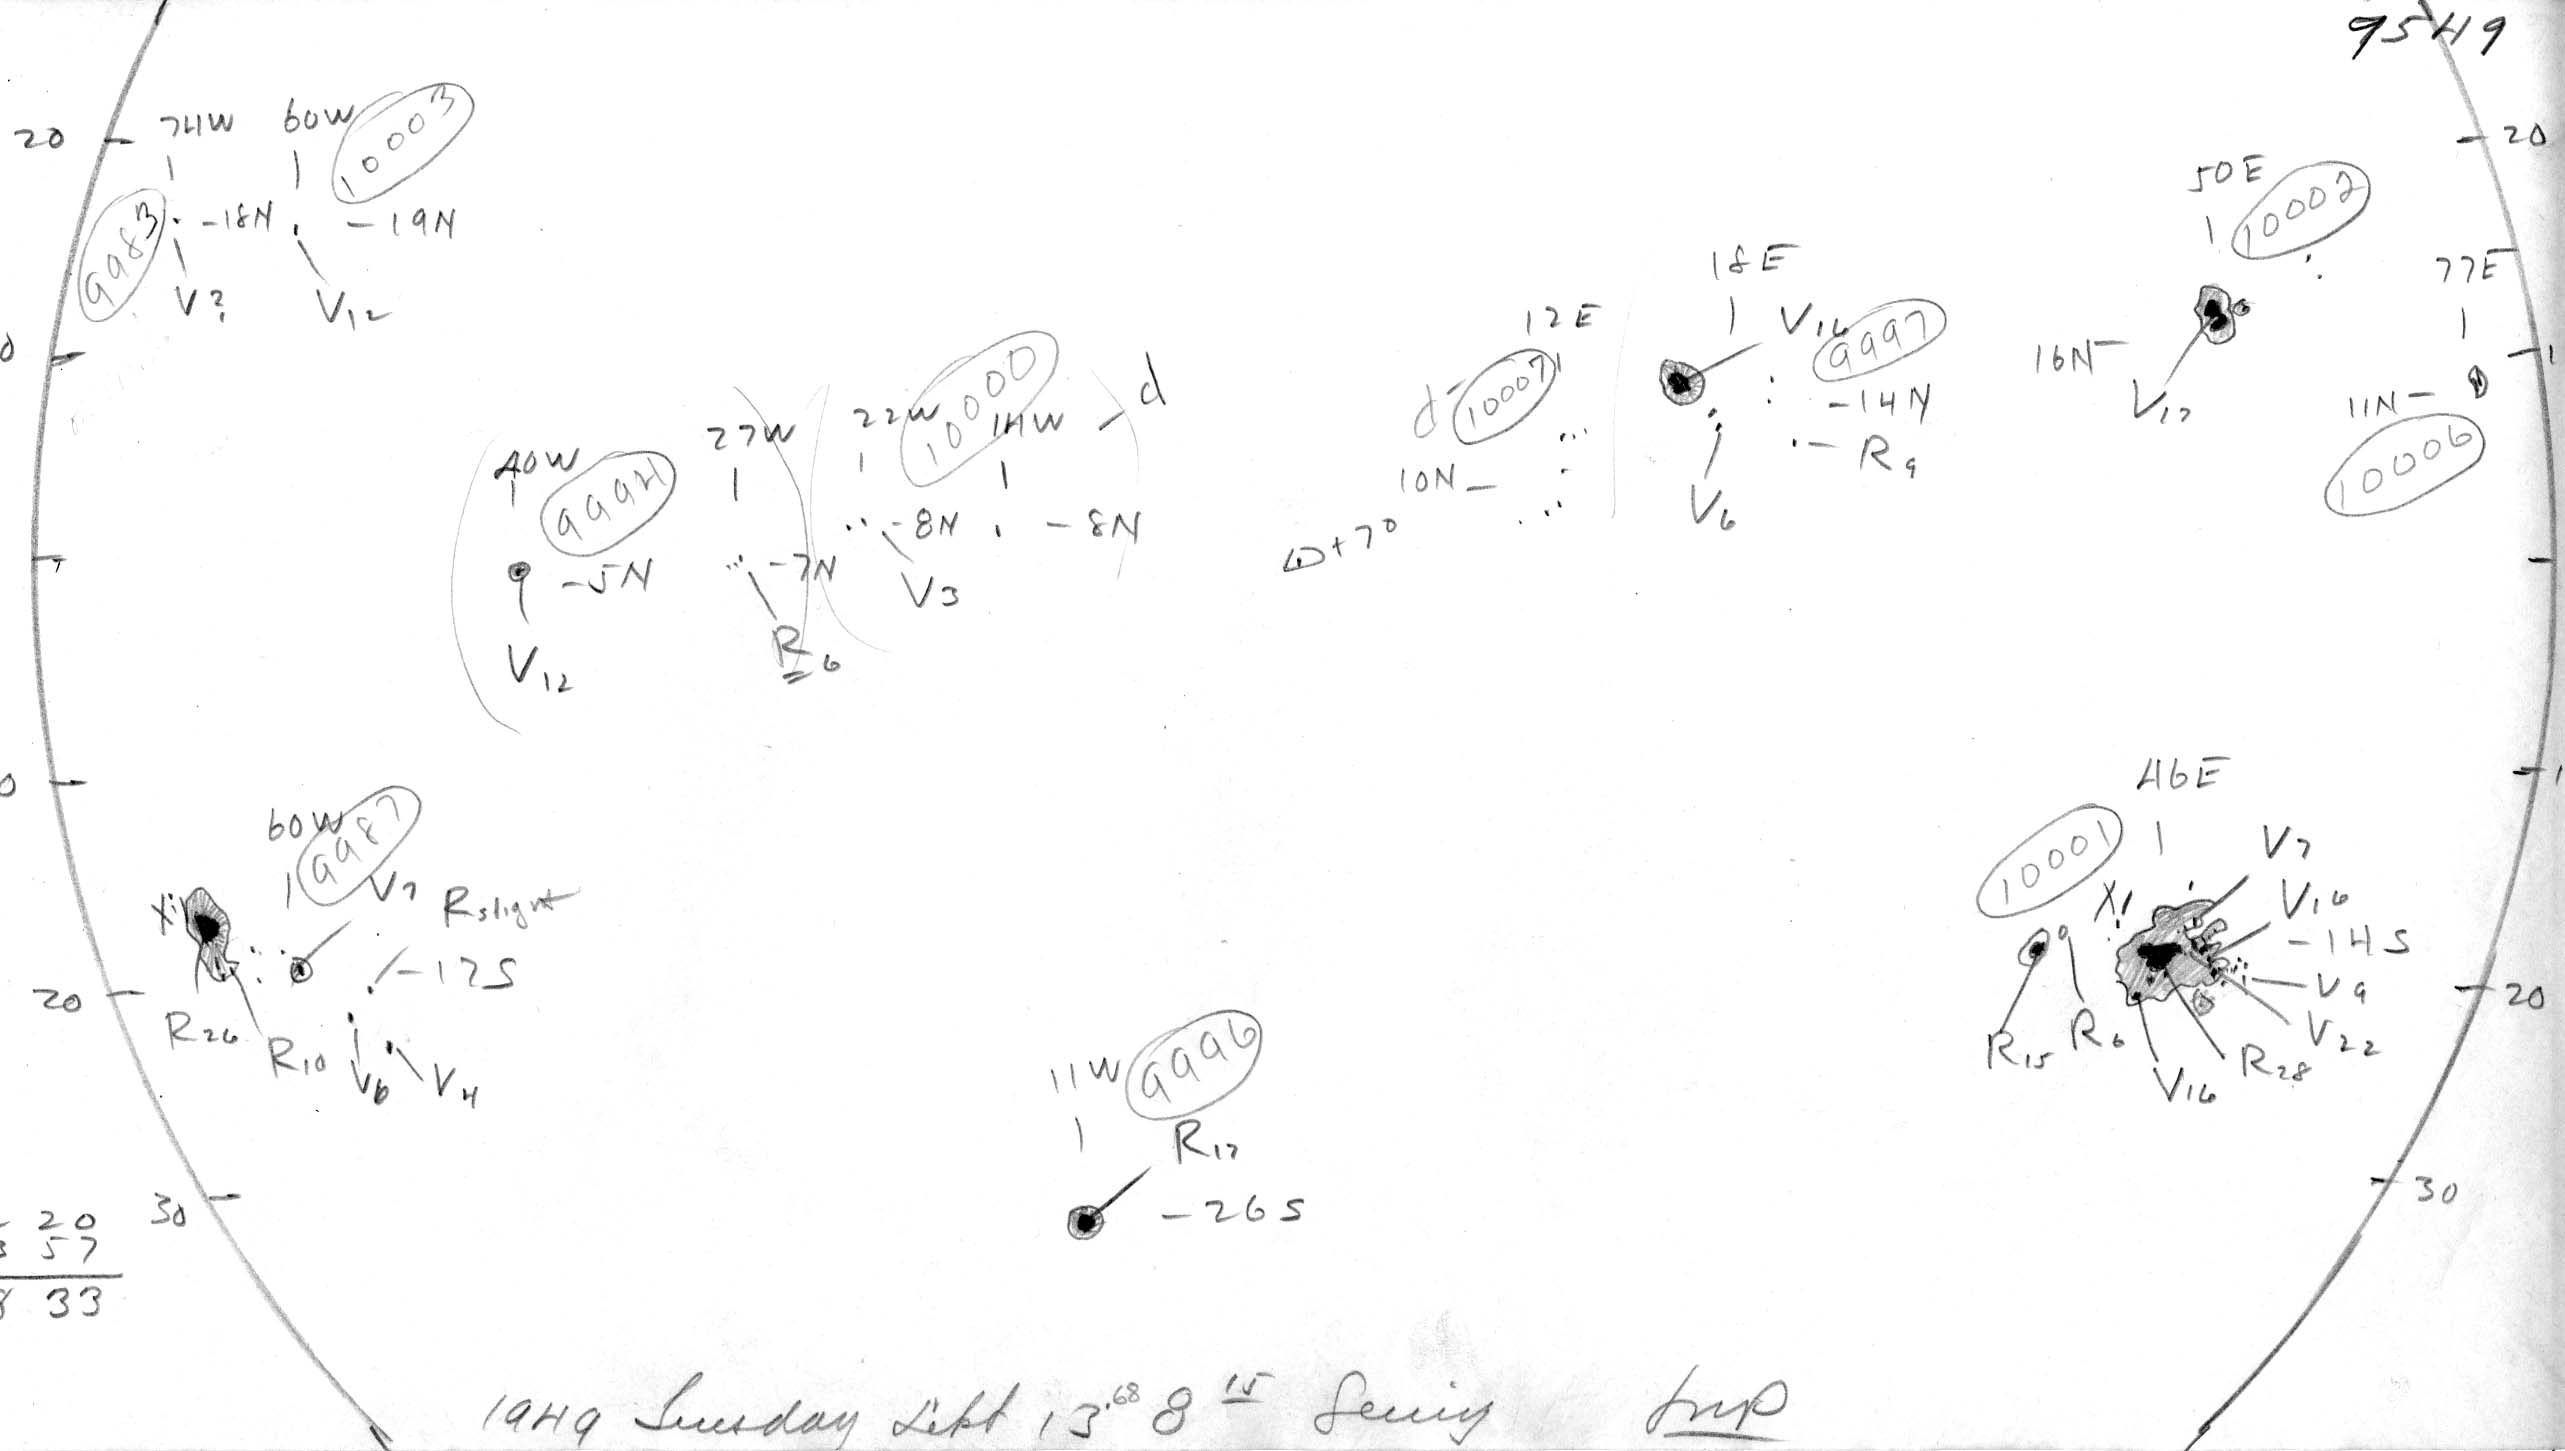 9549
20 74W 60W 10003
9983 -18N -19N
V? V12
20
50E 10002
77E
16N
V17
11N
10006
18E
V16 9997
-14N
R9
V6
12E
d 10007
10N
+7°
40W 9994
-5N
V12
27W
-7N
R6
22W 10000 14W d
-8N -8N
V3
0
0
60W 9987
V7 R slight
-17S
20
R26 R10 V6 V4
46E
10001
V7
V16
-14S
V9
V22
20
R15 R6 V16 R28
11W 9996
R17
-26S
30
30
20
57
33
1949 Tuesday Sept 13.68 8 15 Seeing